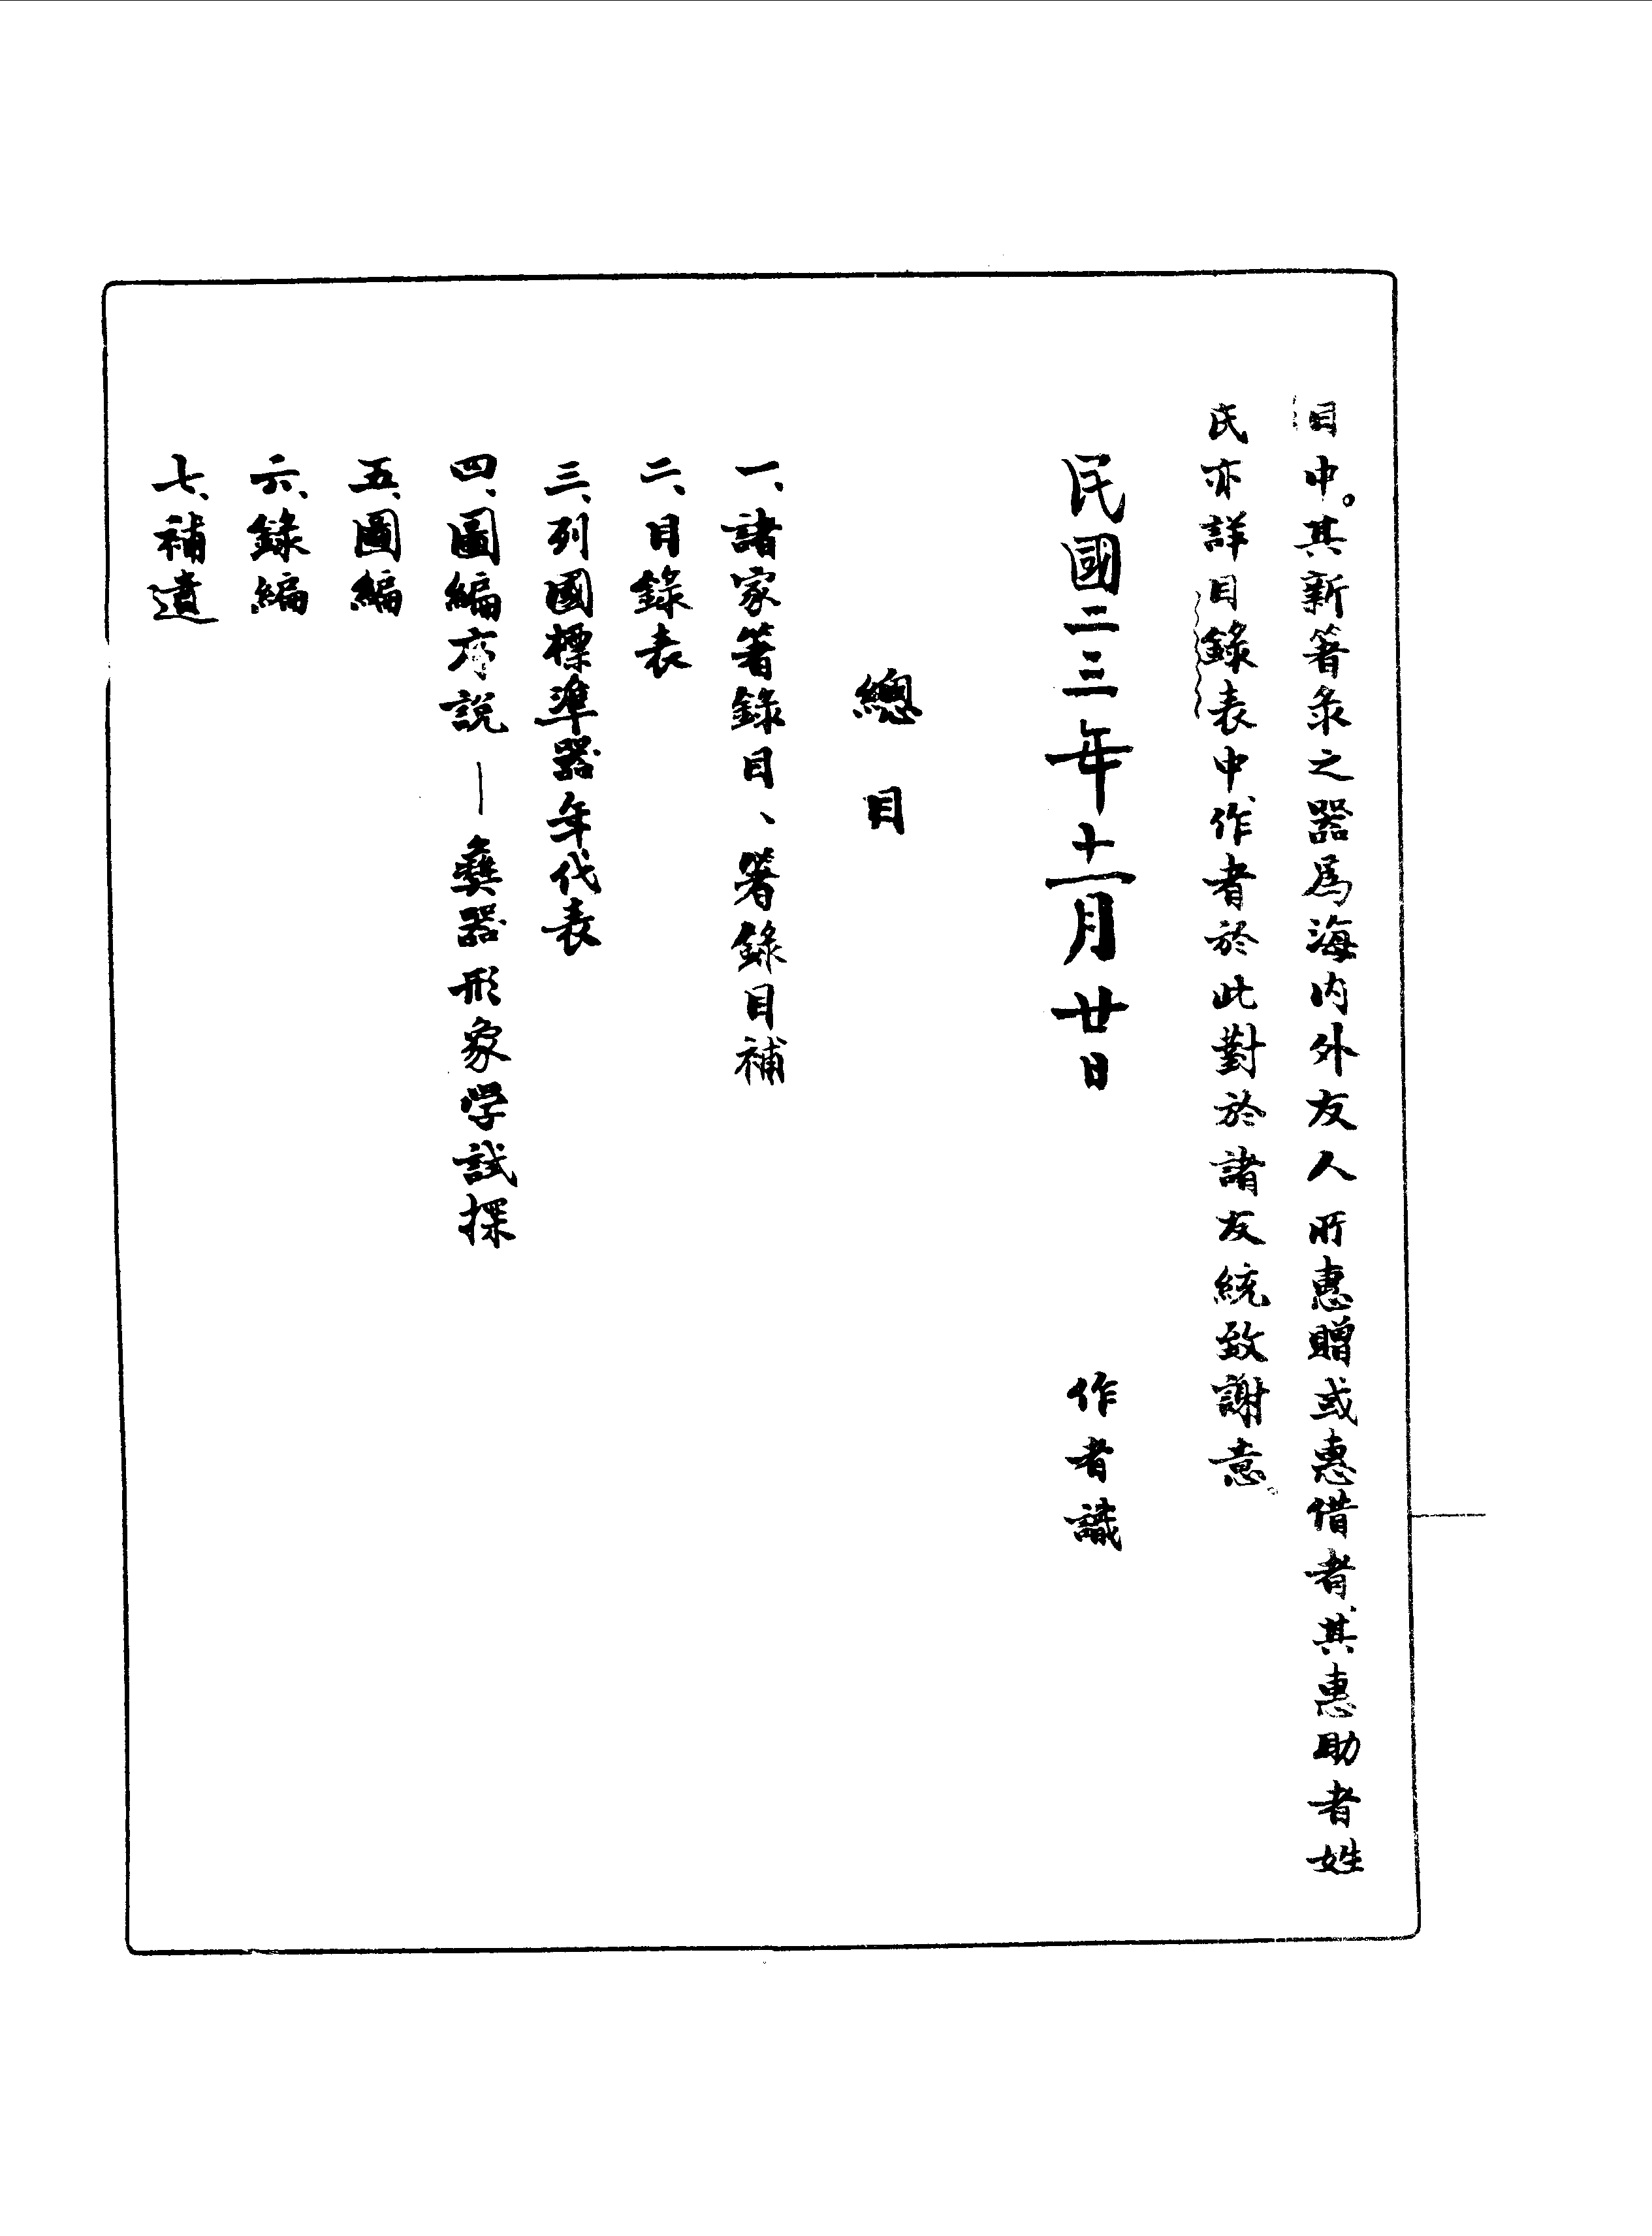 目中。其新箸彔之器爲海内外友人所惠贈或惠借者、其惠助者姓
氏亦詳目錄表中、作者於此對於諸友統致謝意。
民國二三年十一月廿日　作者識
總目
一、諸家箸錄目、箸錄目補
二、目錄表
三、列國標準器年代表
四、圖編序說—彝器形象学試探
五、圖編
六、錄編
七、補遺